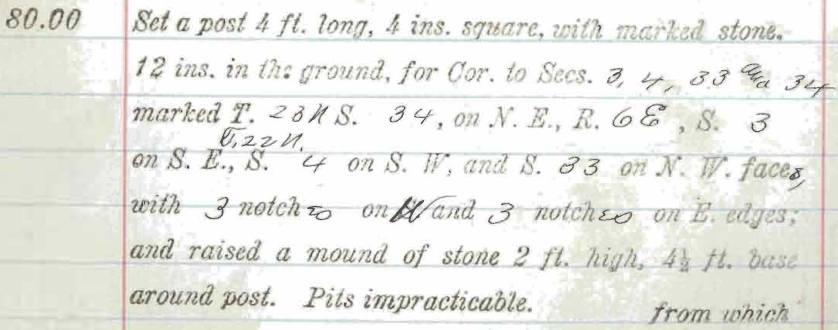 80.00 Set a post 4 ft. long, 4 ins. square, with marked stone.
12 ins. in the ground, for Cor. to Secs. 3, 4, 33 and 34
marked T. 23N S. 34, on N. E., R. 6E, S. 3
T.22N.
on S. E., S. 4 on S. W, and S. 33 on N. W. faces,
with 3 notches on W and 3 notches on E. edges;
and raised a mound of stone 2 ft. high, 4½ ft. base
around post. Pits impracticable.
from which